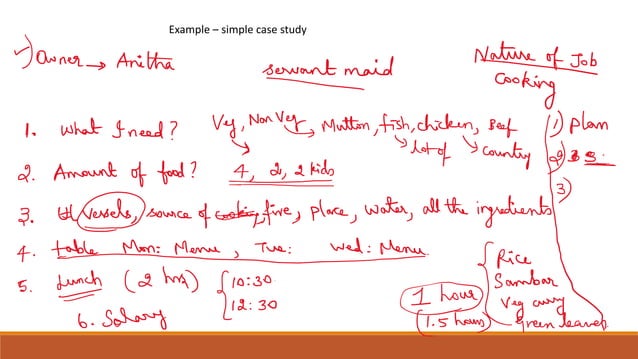 Example – simple case study
Owner → Anitha
servant maid
Nature of Job
Cooking
1. What I need? Veg, Non Veg → Mutton, fish, chicken, Beef
lot of
country
1) plan
2)
3)
2. Amount of food? 4, 2, 2 kids
3. Vessels, source of cooking fire, place, water, all the ingredients
4. table Mon: Menu, Tue: Wed: Menu
5. Lunch (2 hrs) 10:30
12:30
1 hour
(1.5 hours)
Rice
Sambar
Veg curry
Green leaves
6. Salary